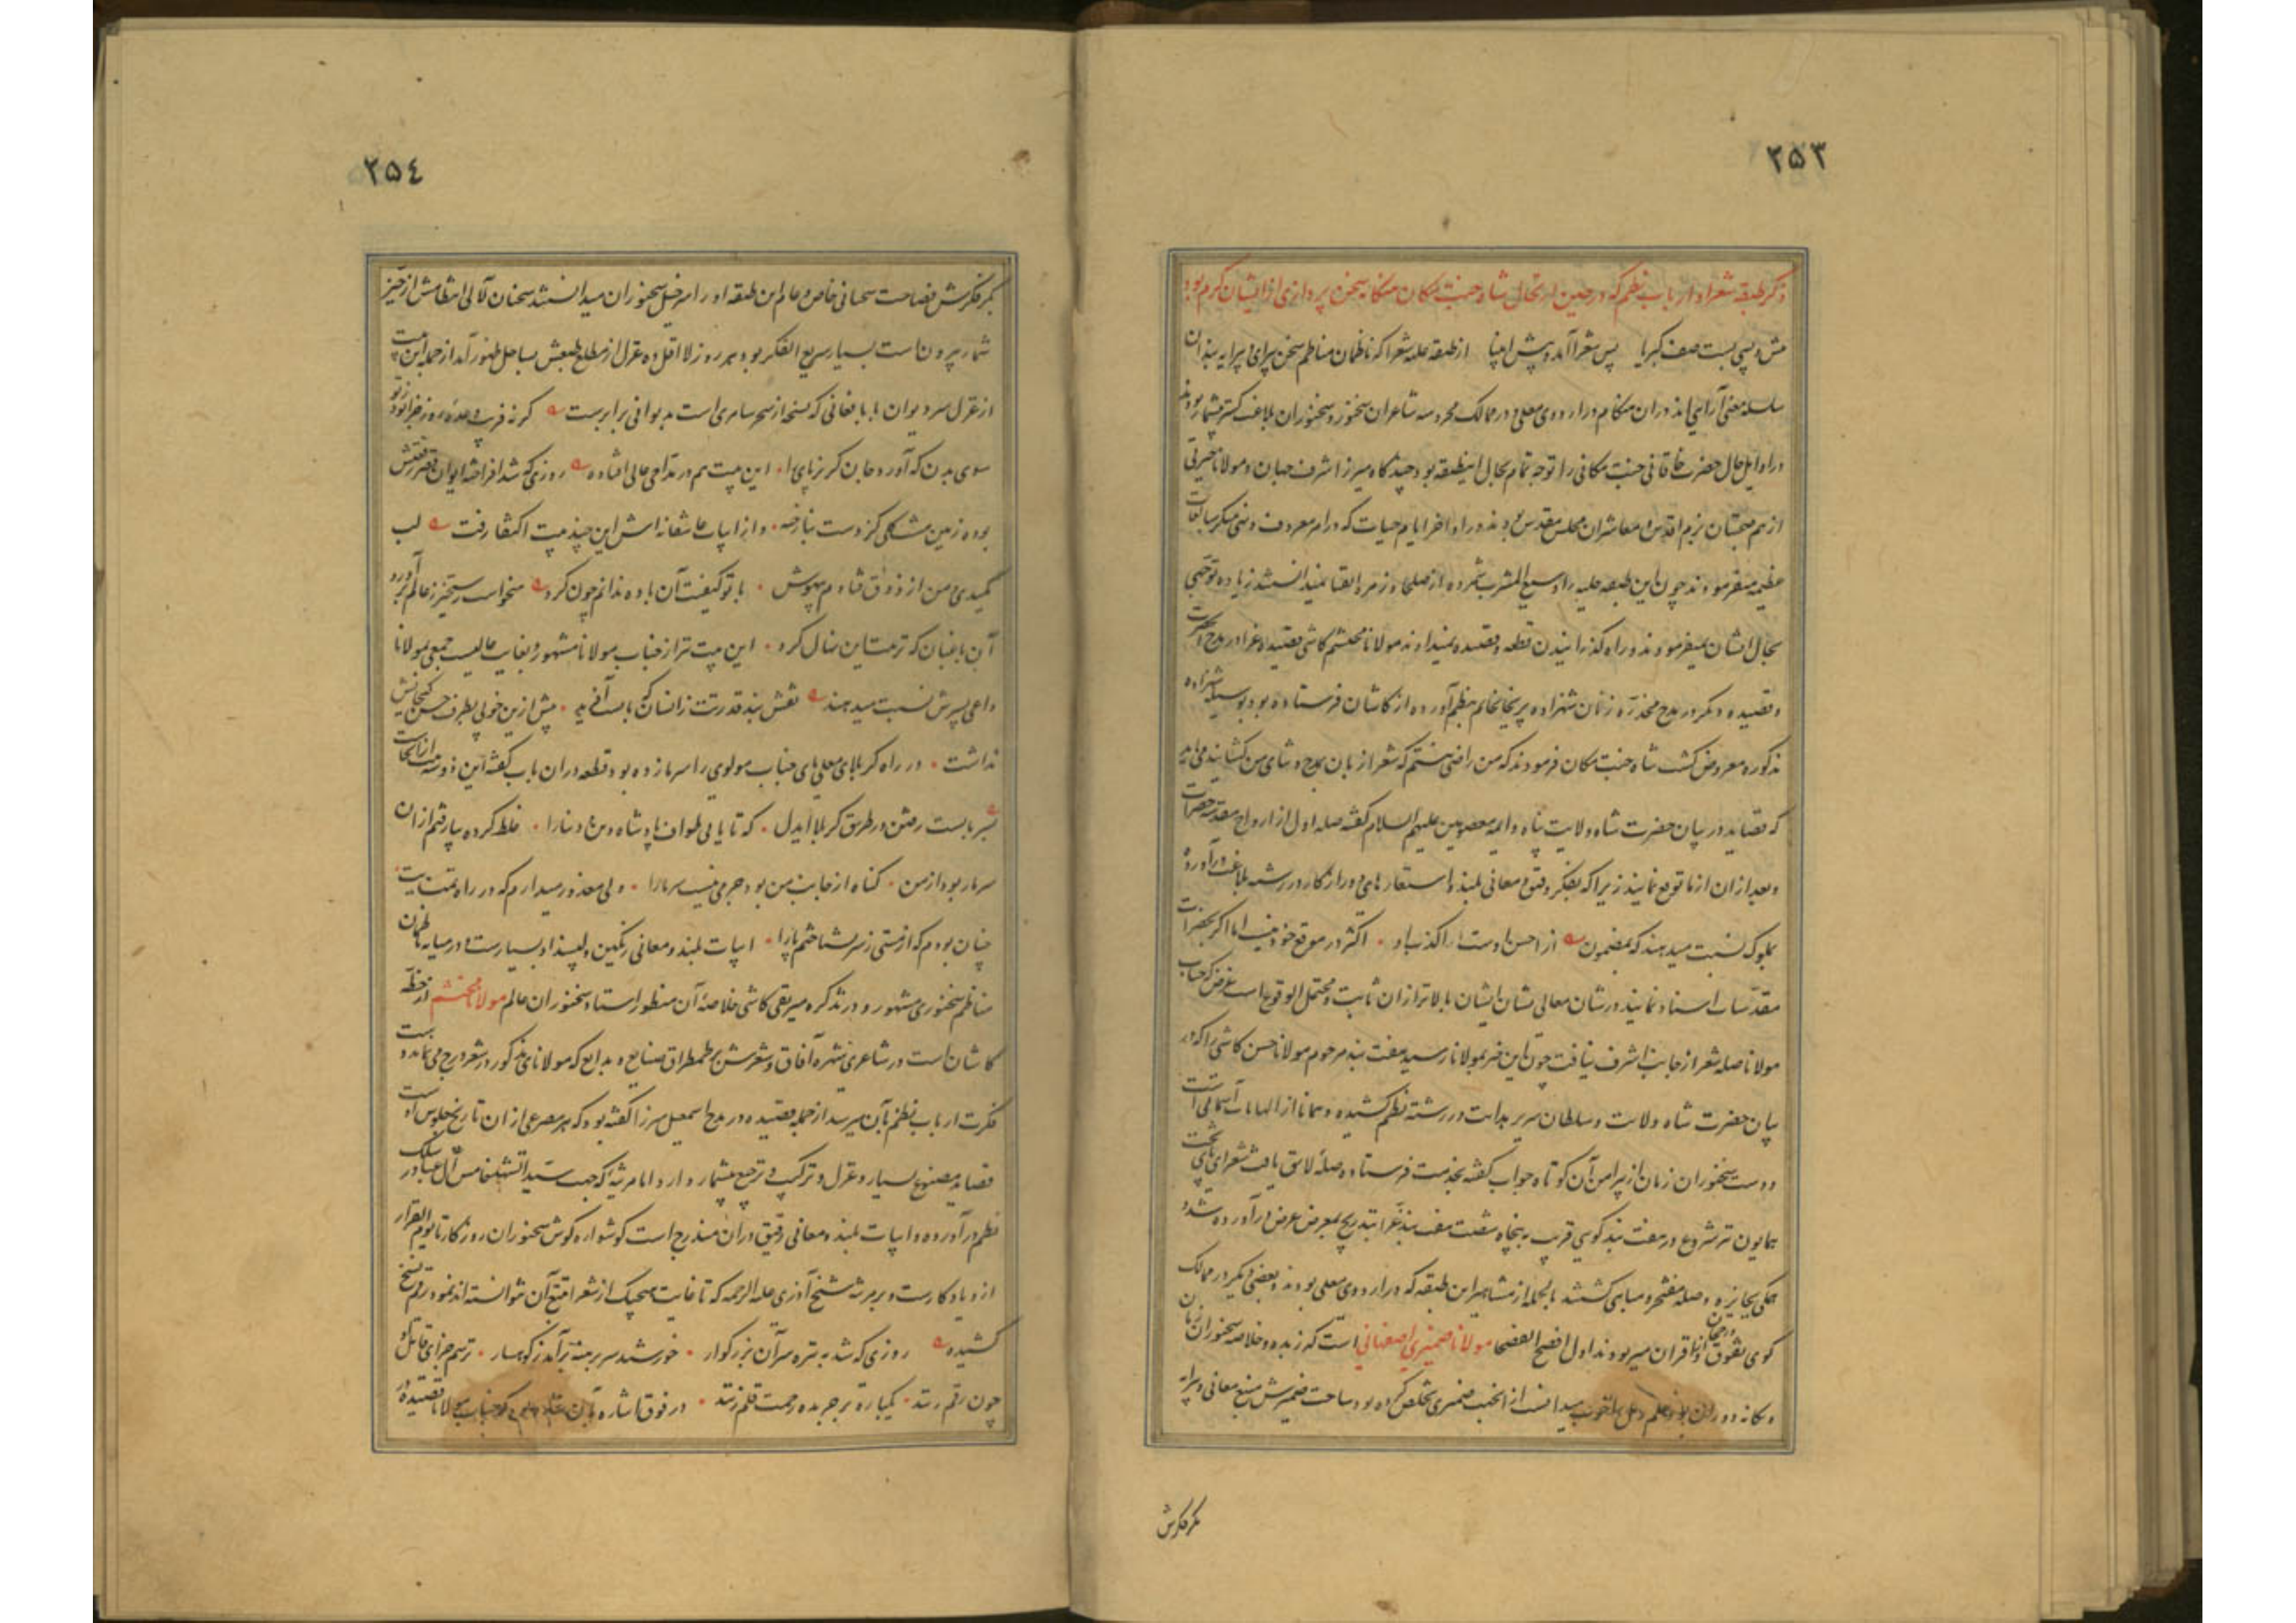 ۲۵۳
ذکر طبقه شعرا و ارباب نظم که در حین ارتحال شاه جنت مکان هنگامه سخن پردازی از ایشان گرم بود
پیش و پسی بست صف کبریا پس شعرا آمد و پیش انبیا از طبقه علیه شعرا که ناظمان مناظم سخن پرای و پیرایه بندان
سلسله معنی آرایی اند در آن هنگام در اردوی معلی و در ممالک محروسه شاعران سخنور و سخنوران بلاغت گستر بیشمار بودند
در اوایل حال حضرت خاقانی جنت مکانی را توجه تمام بحال این طبقه بود چندگاه میرزا شرف جهان و مولانا حیرتی
از هم صحبتان بزم اقدس و معاشران مجلس مقدس بودند و در اواخر ایام حیات که در امر معروف و نهی منکر مبالغات
عظیم میفرمودند چون این طبقه علیه را وسیع المشرب شمرده از صلحا و زمره اتقیا نمیدانستند زیاده توجهی
بحال ایشان نمیفرمودند و راه گذرانیدن قطعه و قصیده نمیدادند مولانا محتشم کاشی قصیده غرا در مدح آنحضرت
و قصیده دیگر در مدح مخدره زمان شهزاده پریخان خانم بنظم آورده از کاشان فرستاده بود بوسیله شهزاده
مذکوره معروض گشت شاه جنت مکان فرمودند که من راضی نیستم که شعرا زبان بمدح و ثنای من گشایند می باید
که قصاید در بیان حضرت شاه ولایت پناه و ایمه معصومین علیهم السلام گفته صله اول از ارواح مقدسه حضرات
و بعد از آن از ما توقع نمایند زیرا که بفکر دقیق و معانی بلند و استعارهای دور از کار در رشته بلاغت درآورده
بملوک نسبت میدهند که بمضمون از احسن اوست اکذب او اکثر در موقع خود نیست اما اگر بحضرات
مقدسات اسناد نمایند در شان معالی نشان ایشان بالاتر از آن ثابت و محتمل الوقوع است غرض که جناب
مولانا صله شعر از جانب اشرف نیافت چون این خبر بمولانا رسید هفت بند مرحوم مولانا حسن کاشی را که در
بیان حضرت شاه ولایت و سلطان سریر هدایت در رشته نظم کشیده و همانا از الهامات آسمانی است
و دست سخنوران زمان از پیرامن آن کوتاه جواب گفته بخدمت فرستاده صلهٔ لایق یافت شعرای پای تخت
همایون نیز شروع در هفت بند گویی قریب به پنجاه شصت هفت بند غرا بتدریج بمعرض عرض درآورده شد و
همگی بجایزه و صله مفتخر و مباهی گشتند بالجمله از مشاهیر این طبقه که در اردوی معلی بودند و بعضی دیگر در ممالک
گوی تفوق از اقران میربودند اول افصح الفصحا مولانا ضمیری اصفهانی است که زبده و خلاصه سخنوران زمان
و یگانه دوران بود و علم رمل را خوب میدانست از آنجهت ضمیری تخلص کرده بود ساحت ضمیرش منبع معانی و پیرایه
بکر فکرش
۲۵٤
بکر فکرش فصاحت سحبانی خاص و عام این طبقه او را سر خیل سخنوران میدانستند سخنان لآلی انتظامش از حیز
شمار بیرونست بسیار سریع الفکر بود هر روز لااقل ده غزل از مطلع طبعش بساحل ظهور آمد از جمله این بیت
از غزل سر دیوان بابا فغانی که نسخه از سحر سامری است به دیوانی برابرست گر نه فریب وعده روز جزا بود
سوی بدن که آورد جان گریزپای را این بیت هم در مداحی عالی افتاده روزی که شد افراخته ایوان قصر رفعتش
بوده زمین مشتی گلی کز دست بنا ریخته و از ابیات عاشقانه اش این چند بیت اکتفا رفت لب
مکیدی من از ذوق فتادم بیهوش با تو کیفیت آن باده ندانم چون کرد میخواست رستخیز ز عالم برآورد
آن باغبان که تربیت این نهال کرد این بیت نیز از جناب مولانا مشهور و بغایت عالیست جمعی بمولانا
داعی پسرش نسبت میدهند نقش بند قدرتت زانسان که بایست آفرید بیش ازین خوبی بظرف حسن گنجایش
نداشت در راه کربلای معلی پای جناب مولوی را سرما زده بود قطعه در آن باب گفته این دو سه بیت از آنجاست
بسر بایست رفتن در طریق کربلا ایدل که تا یابی طواف پادشاه دین و دنیا را غلط کرده بپا رفتم از آن
سرما ربود از من گناه از جانب من بود جرمی نیست سرما را ولی معذور میدارم که در راه تمنایت
چنان بودم که از مستی ز سر نشناختم پا را ابیات بلند و معانی رنگین دلپسند او بسیارست و در میانه ناظمان
مناظم سخنوری مشهور و در تذکره میرتقی کاشی خلاصهٔ آن مسطور استاد سخنوران عالم مولانا محتشم از خطه
کاشان است در شاعری شهره آفاق و شعرش پر طمطراق صنایع و بدایع که مولانای مذکور در شعر درج می نماید دست
فکرت ارباب نظم بآن میرسد از جمله قصیده در مدح اسمعیل میرزا گفته بود که هر مصرعی از آن تاریخ جلوس اوست
قصاید مصنوع بسیار و غزل و ترکیب و ترجیع بیشمار دارد اما مرثیهٔ که جهت سید الشهدا خامس آل عبا در سلک
نظم درآورده و ابیات بلند و معانی دقیق در آن مندرج است گوشواره گوش سخنوران روزگار تا یوم القرار
ازو یادگارست و بر مرثیه شیخ آذری علیه الرحمه که تا غایت هیچیک از شعرا تتبع آن نتوانسته اند نمود رقم نسخ
کشیده روزی که شد به نیزه سر آن بزرگوار خورشید سر برهنه برآمد ز کوهسار ترسم جزای قاتل او
چون رقم زنند یکباره بر جریده رحمت قلم زنند در فوق اشاره بآن جناب مولانا قصیدهٔ در